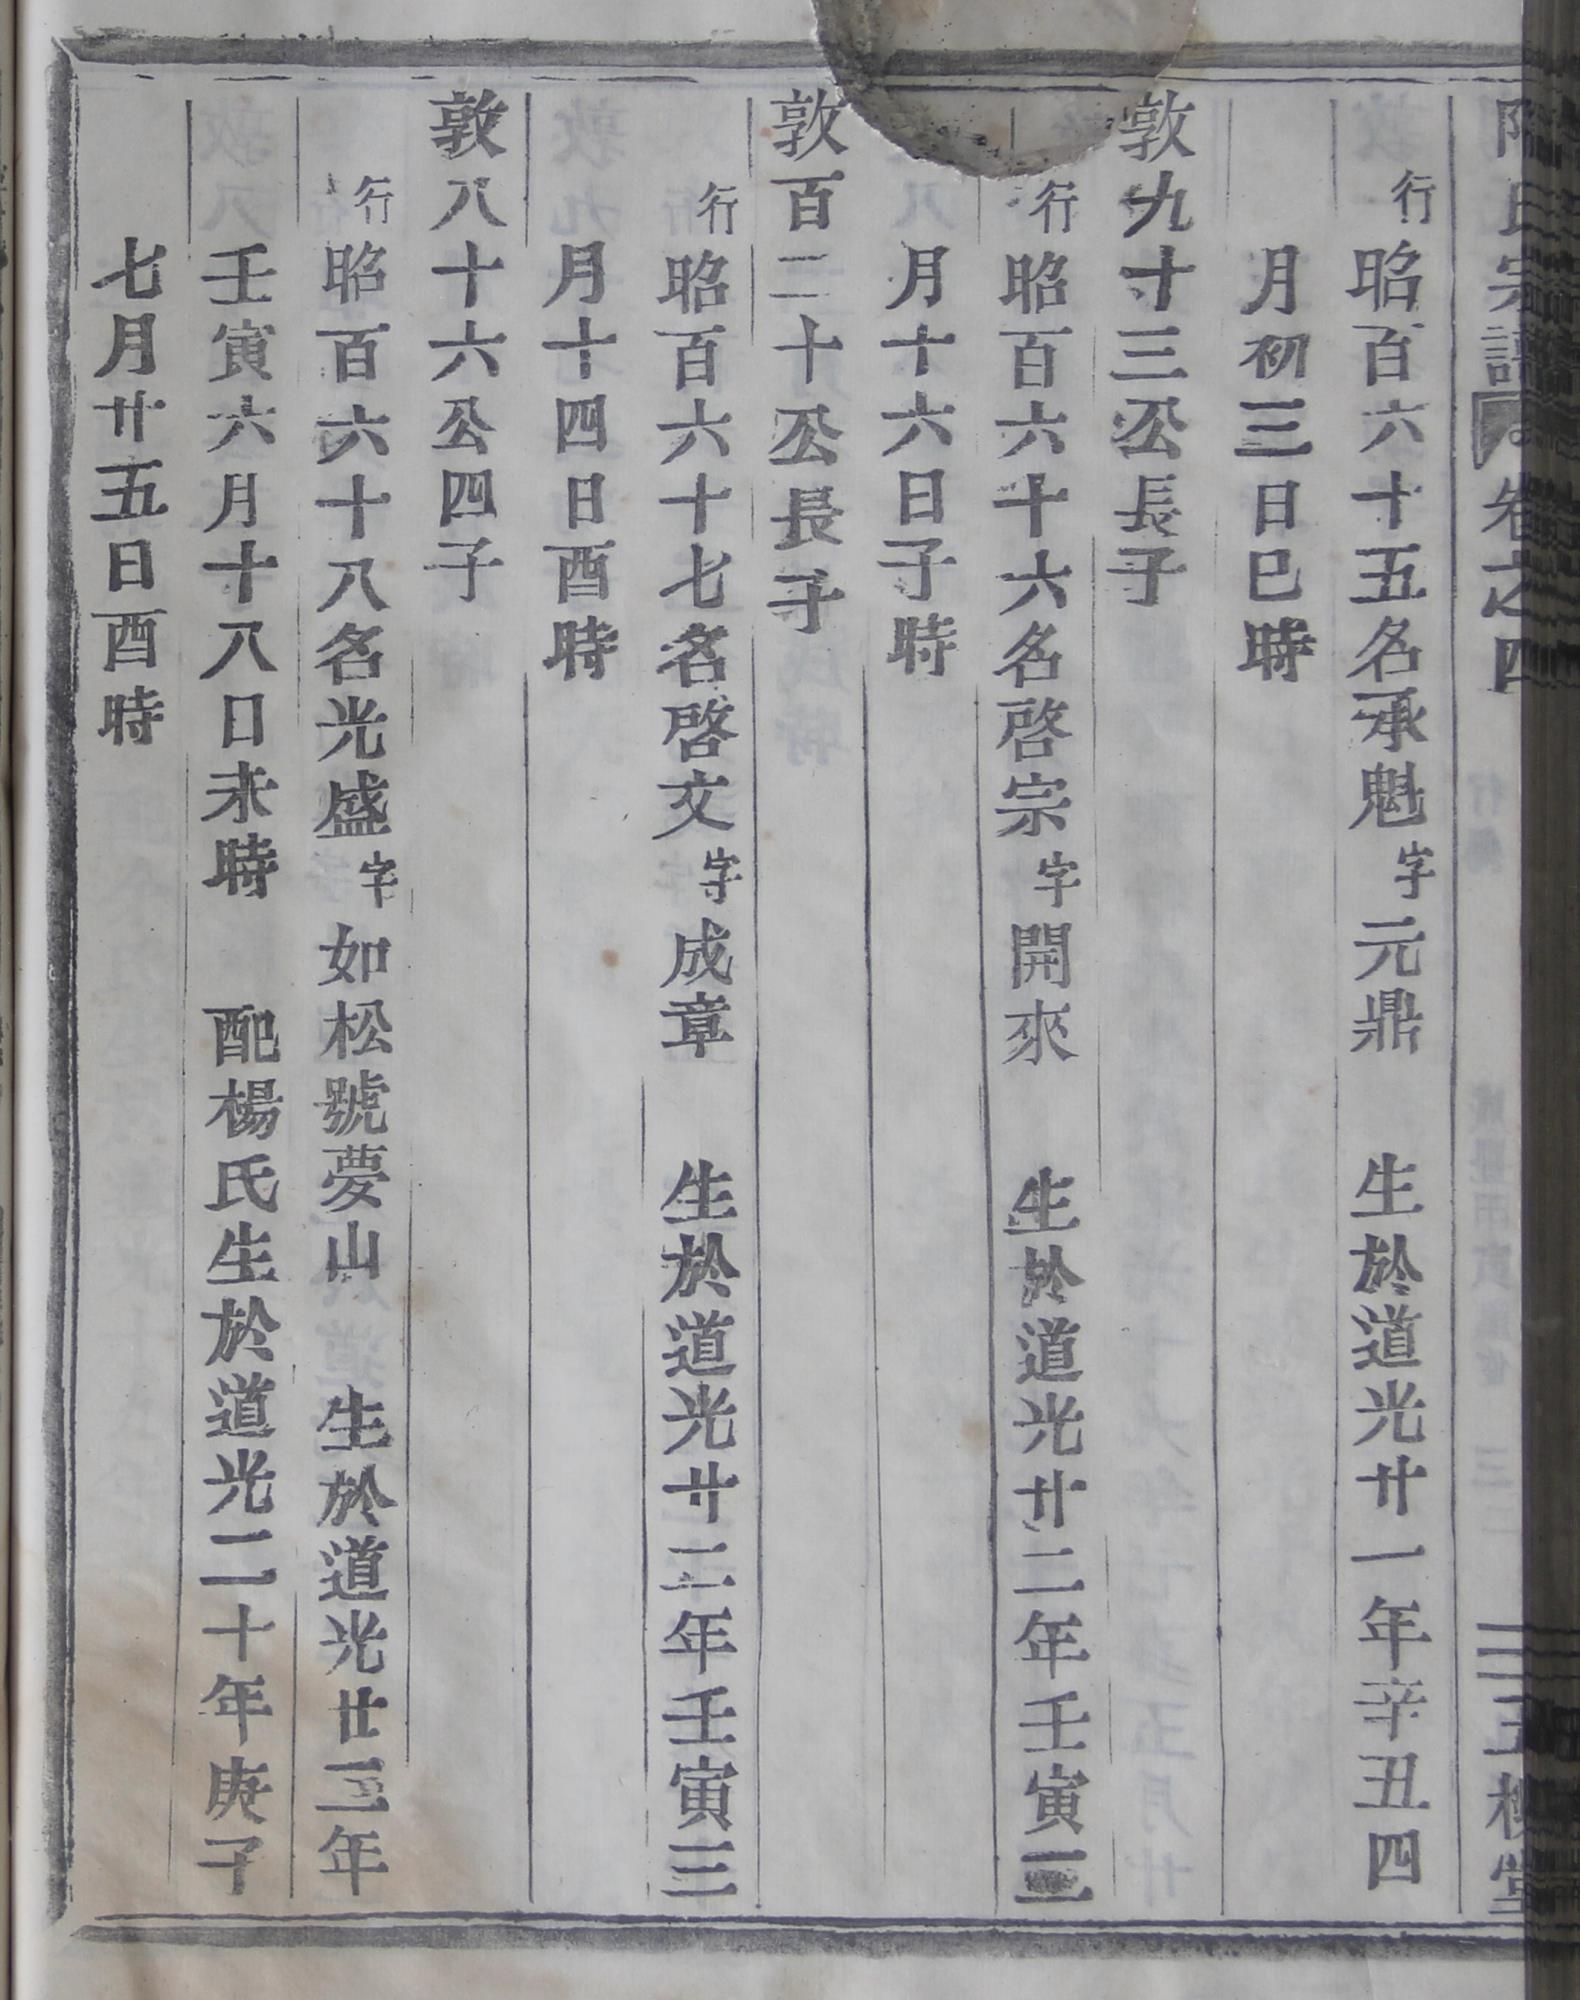 氏宗譜 卷之四 三五槐堂
行昭百六十五名承魁字元鼎 生於道光廿一年辛丑四
月初三日巳時
敦九十三公長子
行昭百六十六名啓宗字開來 生於道光廿二年壬寅三
月十六日子時
敦百二十公長子
行昭百六十七名啓文字成章 生於道光廿二年壬寅三
月十四日酉時
敦八十六公四子
行昭百六十八名光盛字如松號夢山 生於道光廿二年
壬寅六月十八日未時 配楊氏生於道光二十年庚子
七月廿五日酉時